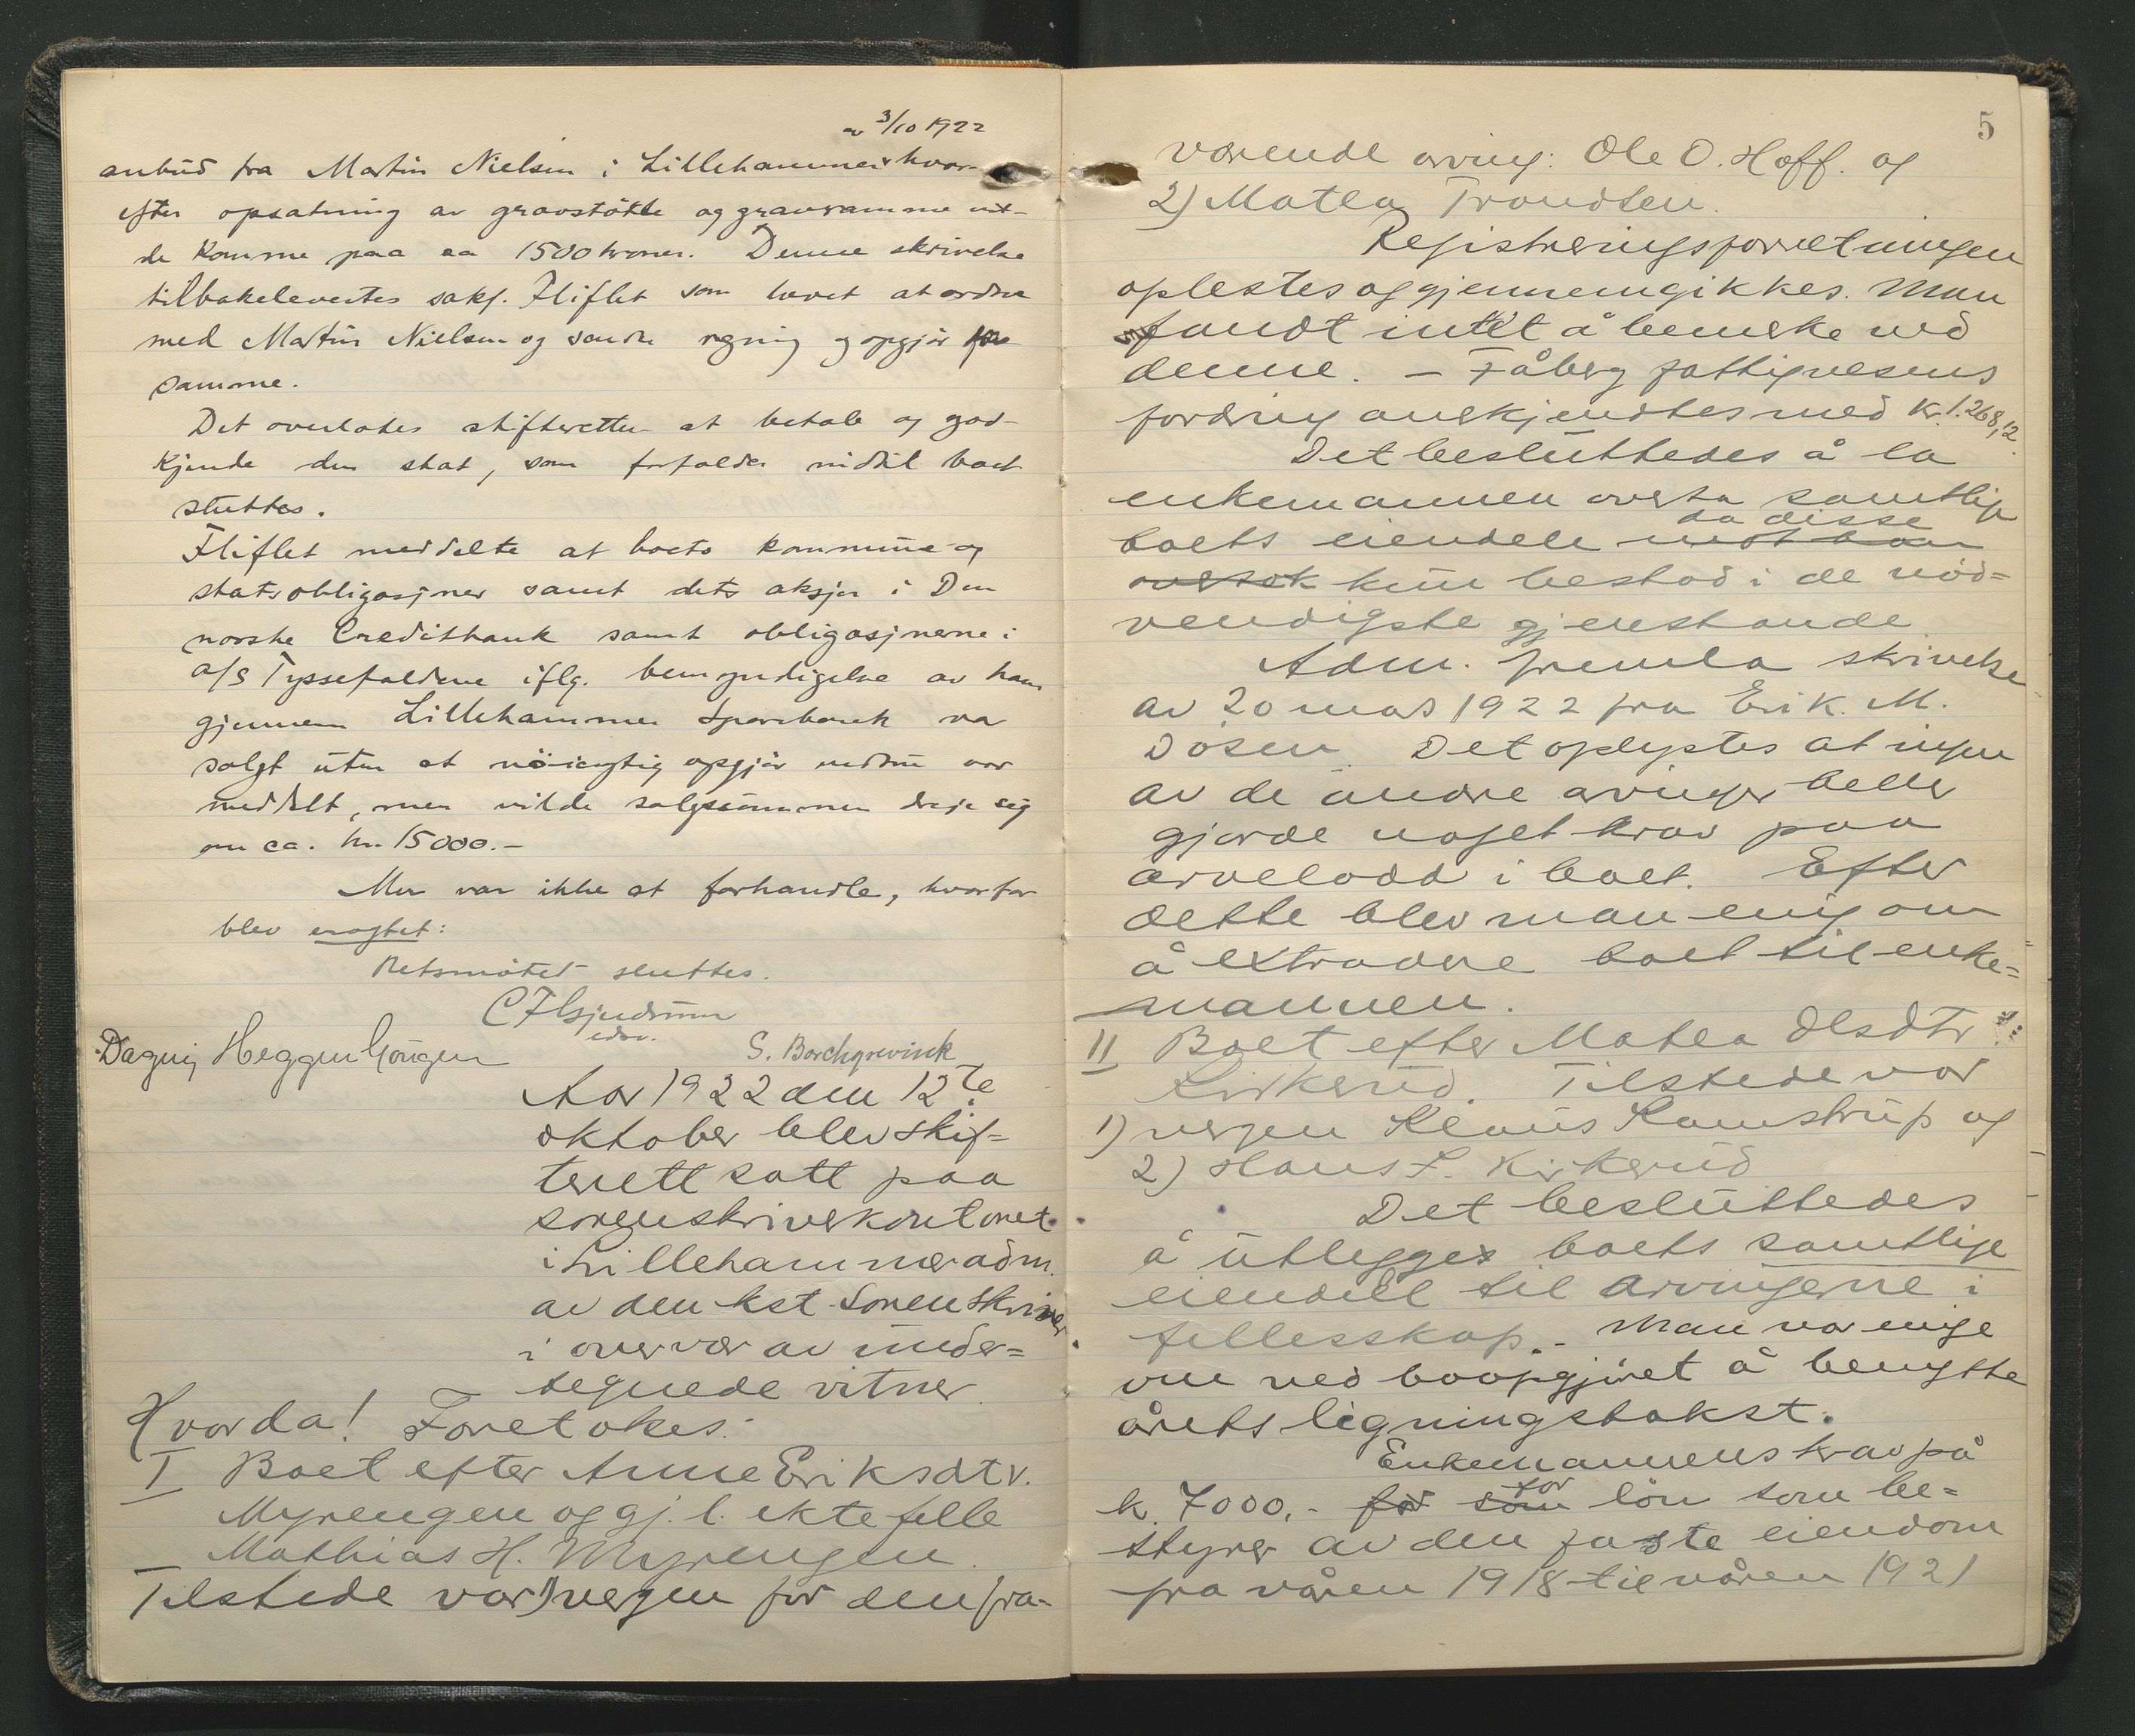 av 3/10 1922
anbud fra Martin Nielsen i Lillehammer hvor-
efter opsatning av gravstötte og gravramme vil-
de komme paa ca 1500 kroner. Denne skrivelse
tilbakelevertes sakf. Fliflet som lovet at ordne
med Martin Nielsen og sende regning og opgjör for
samme.
Det overlates skifteretten at betale og god-
kjende den skat, som forfalder indtil boet
sluttes.
Fliflet meddelte at boets kommune og
statsobligasjoner samt dets aksjer i Den
norske Creditbank samt obligasjonerne i
A/S Tyssefaldene iflg. bemyndigelse av ham
gjennem Lillehammer Sparebank var
solgt uten at nöiagtig opgjör endnu var
meddelt, men vilde salgssummen dreje sig
om ca. kr. 15000.-
Mer var ikke at forhandle, hvorfor
blev eragtet:
Retsmötet sluttes.
edsv.
Dagny Heggen
S. Borchgrevink
Aar 1922 den 12te
oktober blev skif=
terett satt paa
sorenskriverkontoret
i Lillehammer adm.
av den kst. Sorenskriver
i overvær av under=
tegnede vitner.
Hvorda! Foretokes:
I Boet efter Anne Eriksdtr.
Myrengen og gj. l. ektefelle
Mathias H. Myrengen.
Tilstede var 1) vergen for den fra-
5
værende arving: Ole O. Hoff. og
2) Matea Trondsen.
Registreringsforretningen
oplestes og gjennemgikkes. Man
fandt intet å bemerke ved
denne. - Fåberg fattigvesens
fordring anerkjendtes med kr. 1.268,12.
Det besluttedes å la
enkemannen overta samtlige
da disse
boets eiendele mot han
overtok kun bestod i de nöd=
vendigste gjenstande.
Adm. fremla skrivelse
av 20 mars 1922 fra Erik M.
Dösen. Det oplystes at ingen
av de andre arvinger heller
gjorde noget krav paa
arvelodd i boet. Efter
dette blev man enig om
å extradere boet til enke=
mannen.
II Boet efter Matea Olsdtr
Kirkerud. Tilstede var
1) vergen Klaus Kamstrup og
2) Hans L. Kirkerud
Det besluttedes
å utlegges boets samtlige
eiendele til arvingerne i
fellesskap. - Man var enige
om ved boopgjöret å benytte
årets ligningstakst.
Enkemannens krav på
for
k. 7000,- for som lön som be=
styrer av den faste eiendom
fra våren 1918 til våren 1921